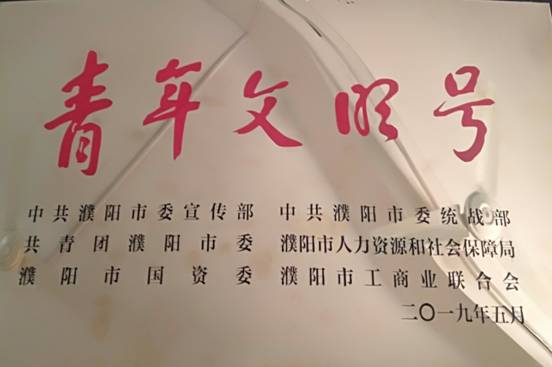 青年文明号
中共濮阳市委宣传部 中共濮阳市委统战部
共青团濮阳市委 濮阳市人力资源和社会保障局
濮阳市国资委 濮阳市工商业联合会
二〇一九年五月